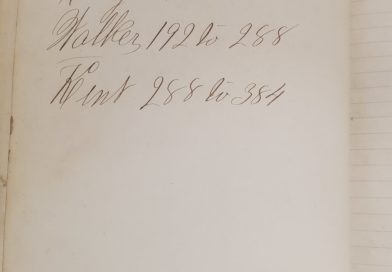 Walker, 192 to 288
Kent 288 to 384